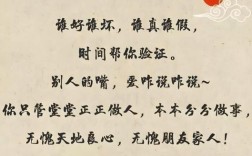 谁好谁坏，谁真谁假，
时间帮你验证。
别人的嘴，爱咋说咋说~
你只管堂堂正正做人，本本分分做事，
无愧天地良心，无愧朋友家人！